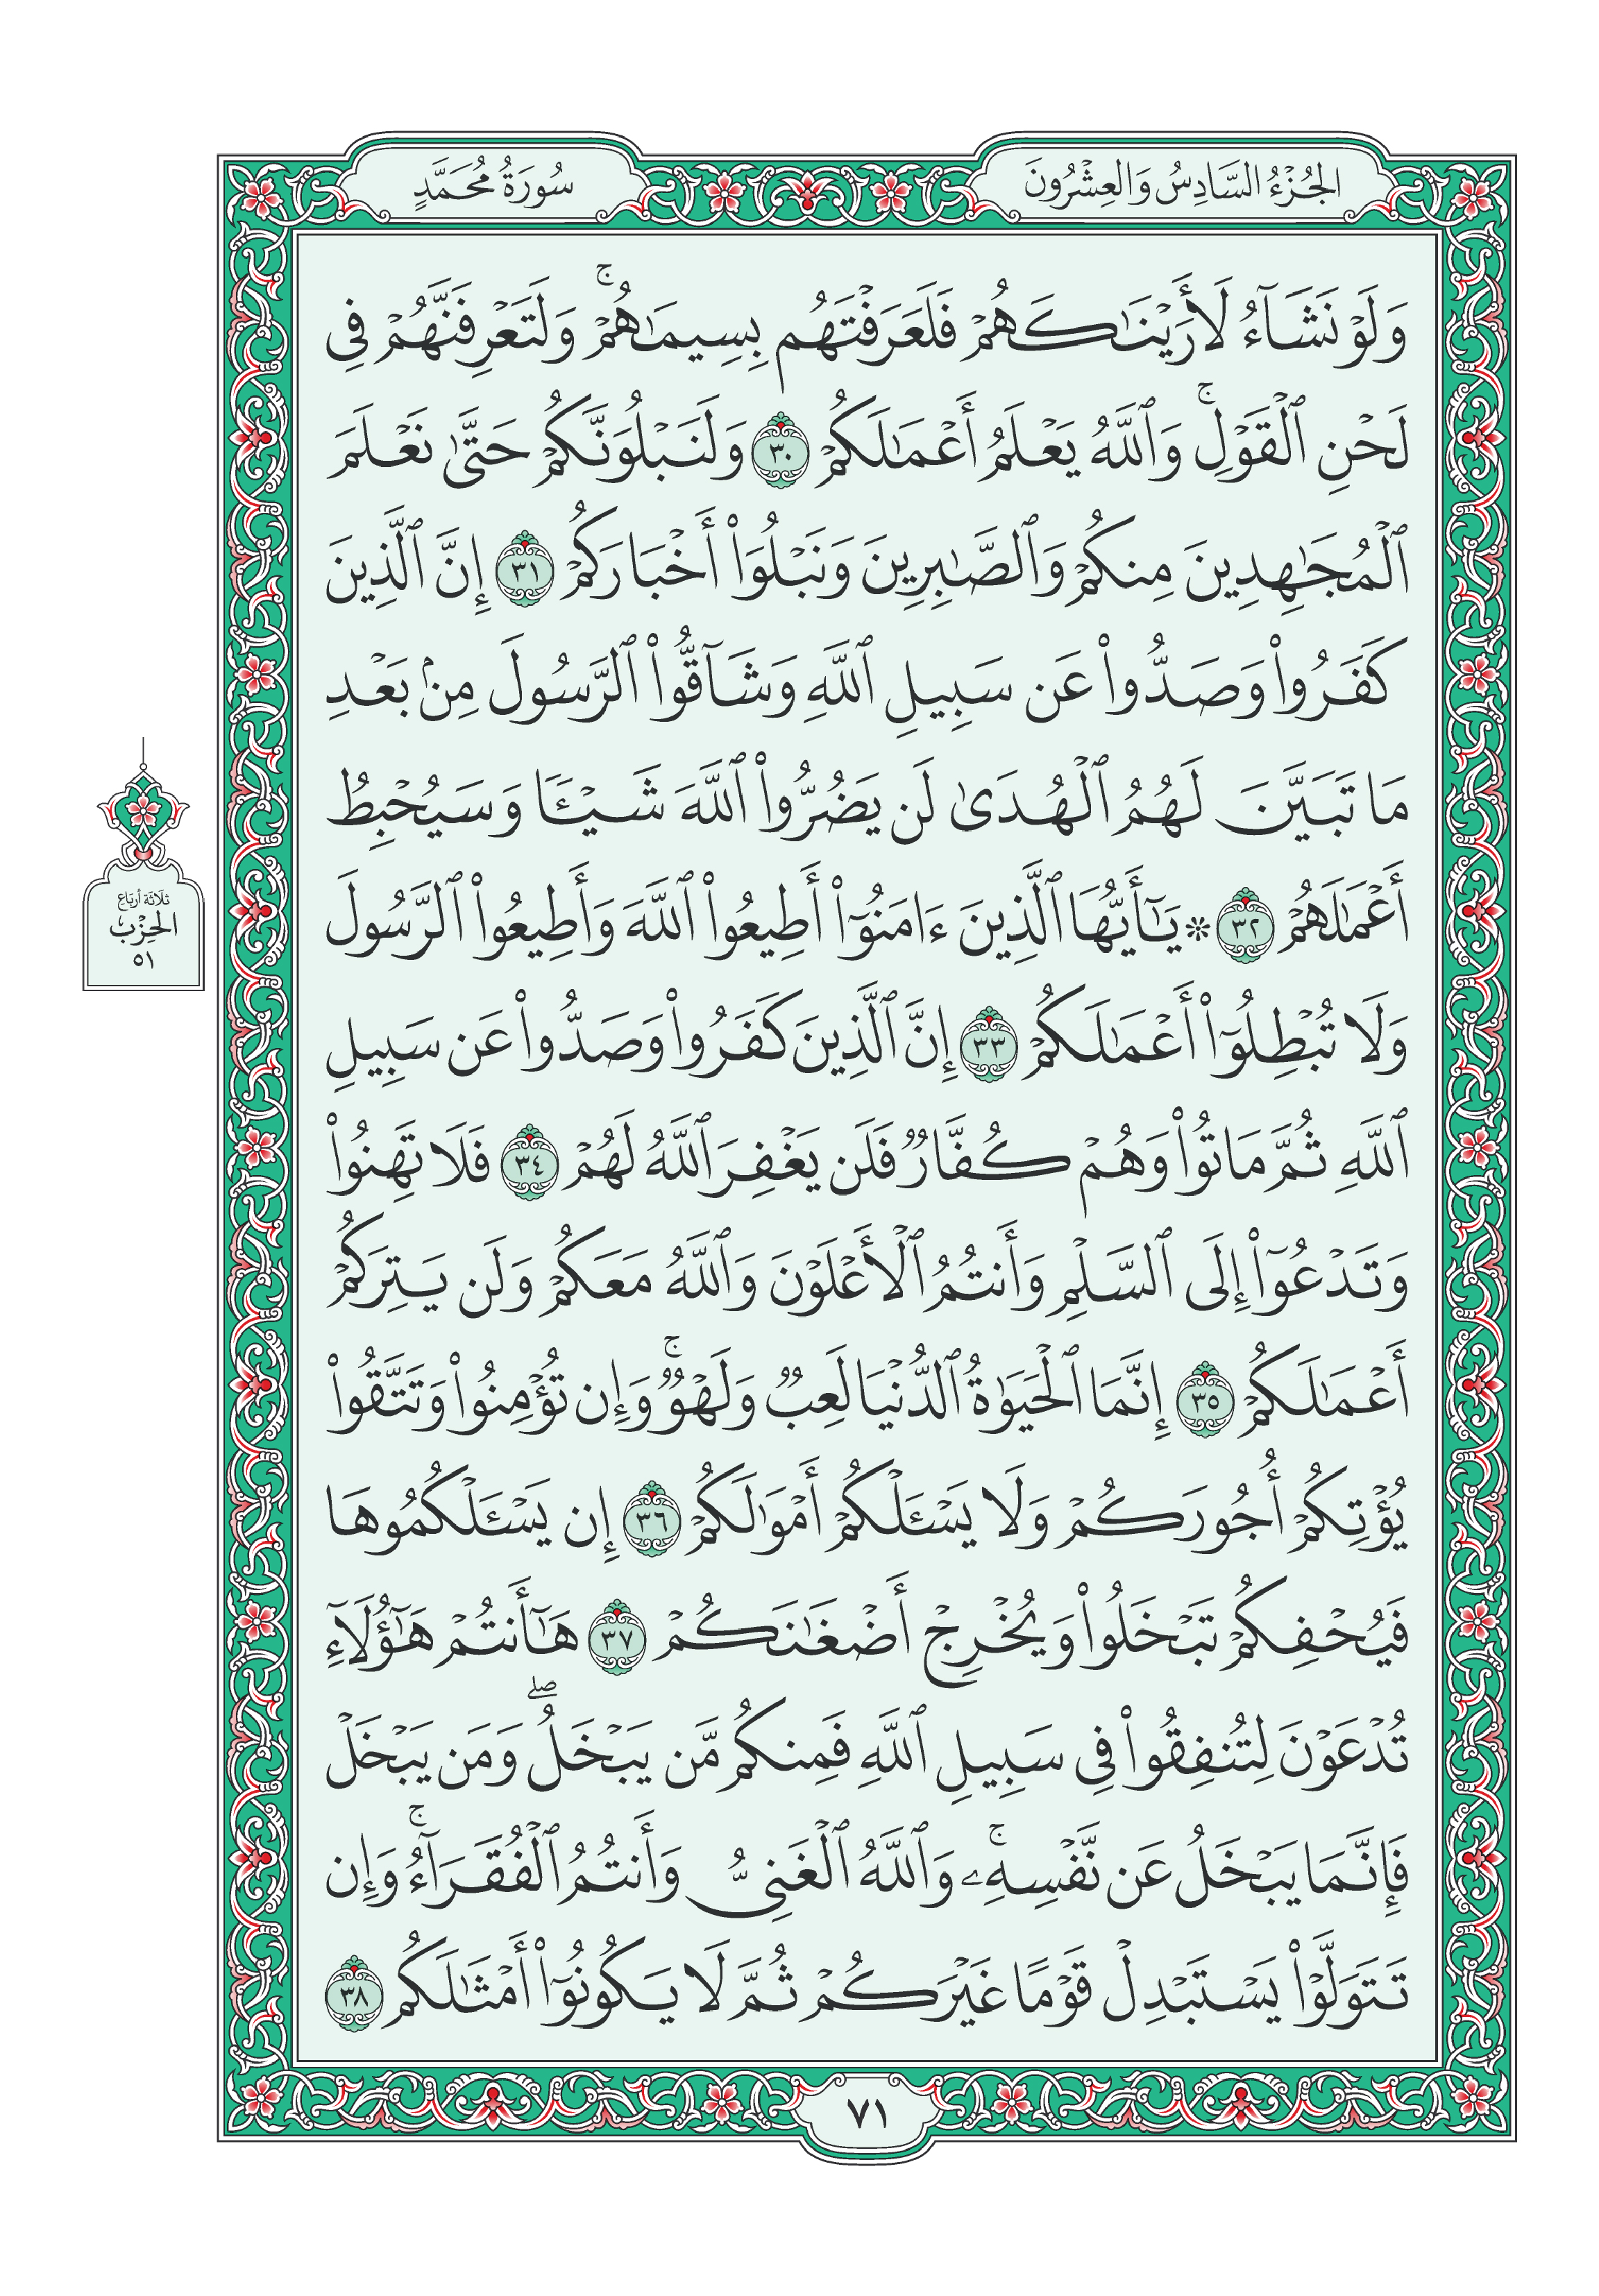 الجُزْءُ السَّادِسُ وَالعِشْرُونَ
سُورَةُ مُحَمَّدٍ
وَلَوْ نَشَآءُ لَأَرَيْنَٰكَهُمْ فَلَعَرَفْتَهُم بِسِيمَٰهُمْۚ وَلَتَعْرِفَنَّهُمْ فِى
لَحْنِ ٱلْقَوْلِۚ وَٱللَّهُ يَعْلَمُ أَعْمَٰلَكُمْ ٣٠ وَلَنَبْلُوَنَّكُمْ حَتَّىٰ نَعْلَمَ
ٱلْمُجَٰهِدِينَ مِنكُمْ وَٱلصَّٰبِرِينَ وَنَبْلُوَا۟ أَخْبَارَكُمْ ٣١ إِنَّ ٱلَّذِينَ
كَفَرُوا۟ وَصَدُّوا۟ عَن سَبِيلِ ٱللَّهِ وَشَآقُّوا۟ ٱلرَّسُولَ مِنۢ بَعْدِ
مَا تَبَيَّنَ لَهُمُ ٱلْهُدَىٰ لَن يَضُرُّوا۟ ٱللَّهَ شَيْـًٔا وَسَيُحْبِطُ
أَعْمَٰلَهُمْ ٣٢ ۞ يَٰٓأَيُّهَا ٱلَّذِينَ ءَامَنُوٓا۟ أَطِيعُوا۟ ٱللَّهَ وَأَطِيعُوا۟ ٱلرَّسُولَ
وَلَا تُبْطِلُوٓا۟ أَعْمَٰلَكُمْ ٣٣ إِنَّ ٱلَّذِينَ كَفَرُوا۟ وَصَدُّوا۟ عَن سَبِيلِ
ٱللَّهِ ثُمَّ مَاتُوا۟ وَهُمْ كُفَّارٌ فَلَن يَغْفِرَ ٱللَّهُ لَهُمْ ٣٤ فَلَا تَهِنُوا۟
وَتَدْعُوٓا۟ إِلَى ٱلسَّلْمِ وَأَنتُمُ ٱلْأَعْلَوْنَ وَٱللَّهُ مَعَكُمْ وَلَن يَتِرَكُمْ
أَعْمَٰلَكُمْ ٣٥ إِنَّمَا ٱلْحَيَوٰةُ ٱلدُّنْيَا لَعِبٌ وَلَهْوٌۚ وَإِن تُؤْمِنُوا۟ وَتَتَّقُوا۟
يُؤْتِكُمْ أُجُورَكُمْ وَلَا يَسْـَٔلْكُمْ أَمْوَٰلَكُمْ ٣٦ إِن يَسْـَٔلْكُمُوهَا
فَيُحْفِكُمْ تَبْخَلُوا۟ وَيُخْرِجْ أَضْغَٰنَكُمْ ٣٧ هَٰٓأَنتُمْ هَٰٓؤُلَآءِ
تُدْعَوْنَ لِتُنفِقُوا۟ فِى سَبِيلِ ٱللَّهِ فَمِنكُم مَّن يَبْخَلُۖ وَمَن يَبْخَلْ
فَإِنَّمَا يَبْخَلُ عَن نَّفْسِهِۦۚ وَٱللَّهُ ٱلْغَنِىُّ وَأَنتُمُ ٱلْفُقَرَآءُۚ وَإِن
تَتَوَلَّوْا۟ يَسْتَبْدِلْ قَوْمًا غَيْرَكُمْ ثُمَّ لَا يَكُونُوٓا۟ أَمْثَٰلَكُم ٣٨
ثَلَاثَةُ أَرْبَاعِ
الحِزْبِ
٥١
٧١